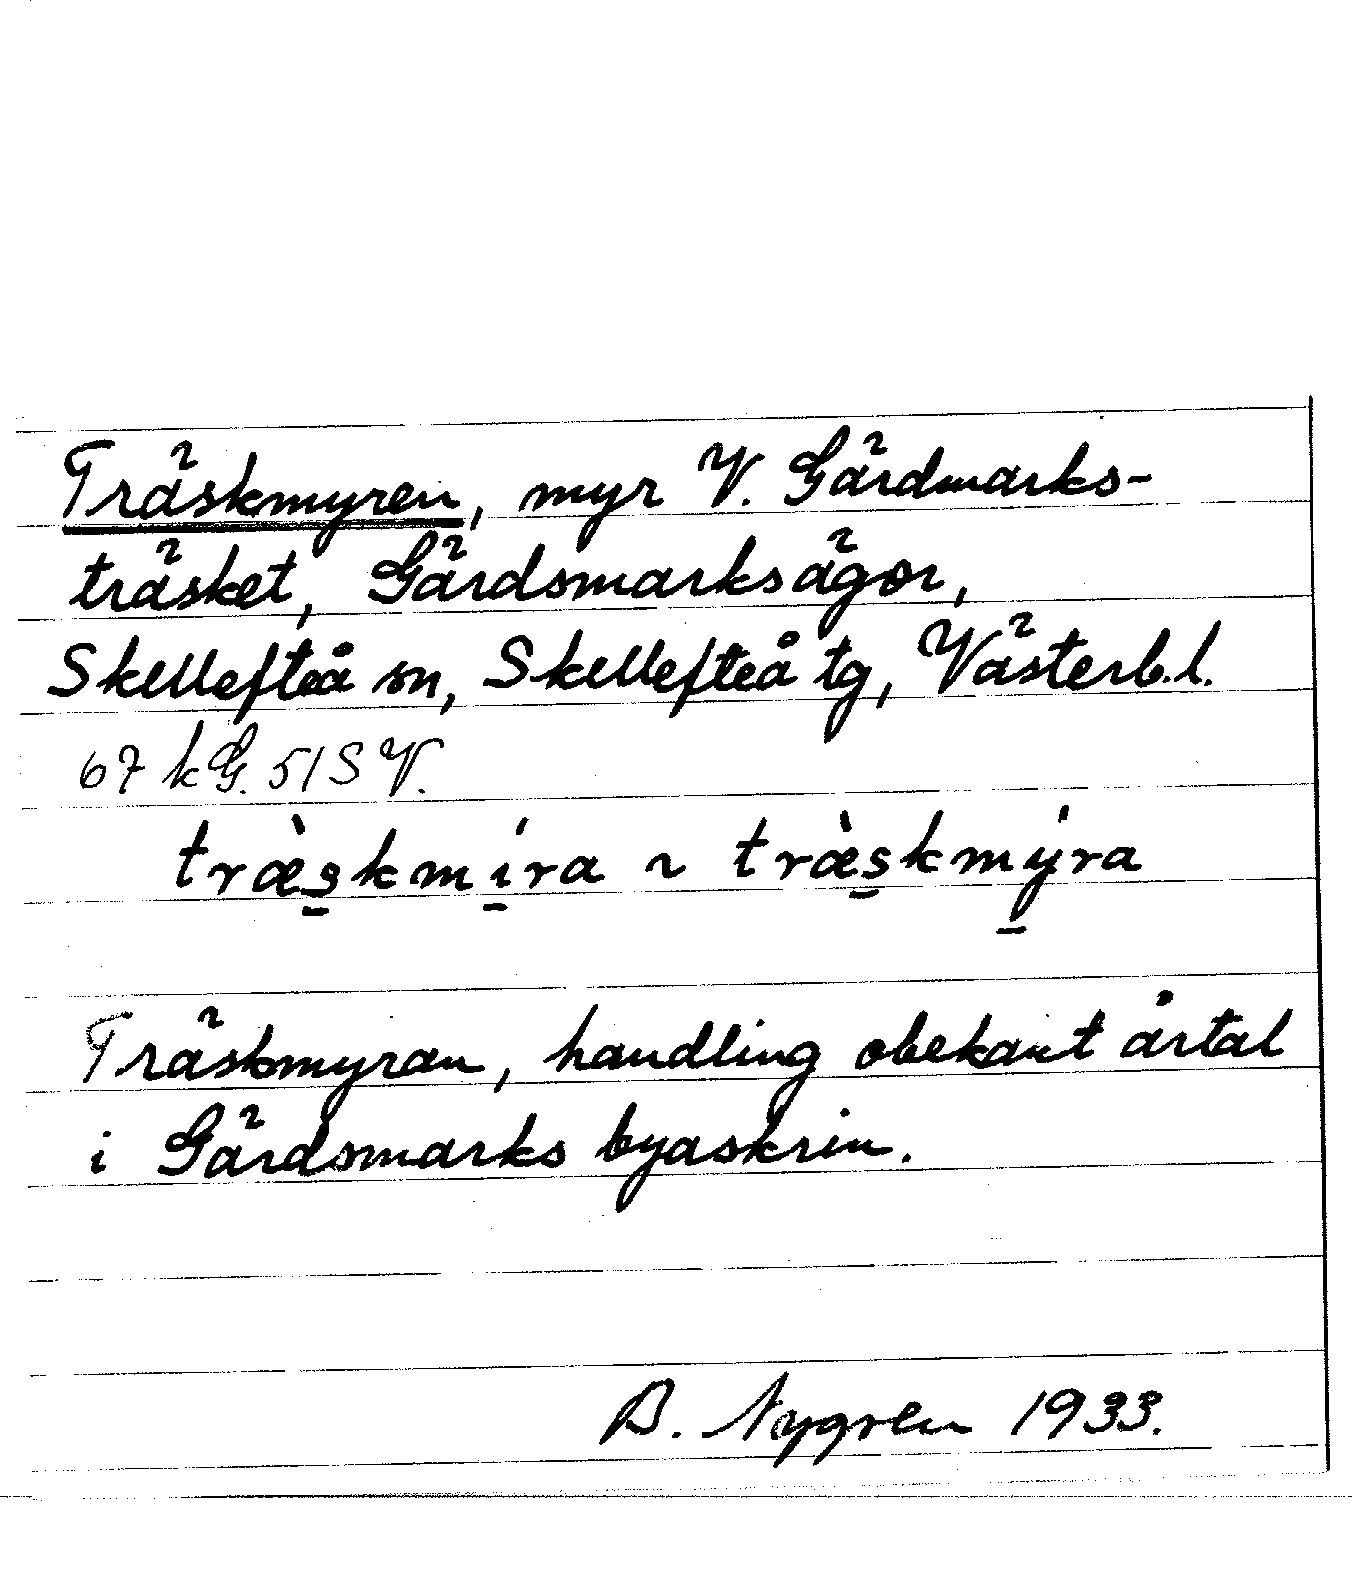 Träskmyren, myr V. Gärdmarks-
träsket, Gärdsmarksägor,
Skellefteå sn, Skellefteå tg, Västerb.l.
67 kG. 51SV.
træ̀s̱kmí̱ra ~ træ̀s̱kmý̱ra
Träskmyran, handling obekant årtal
i Gärdsmarks byaskrin.
B. Nygren 1933.